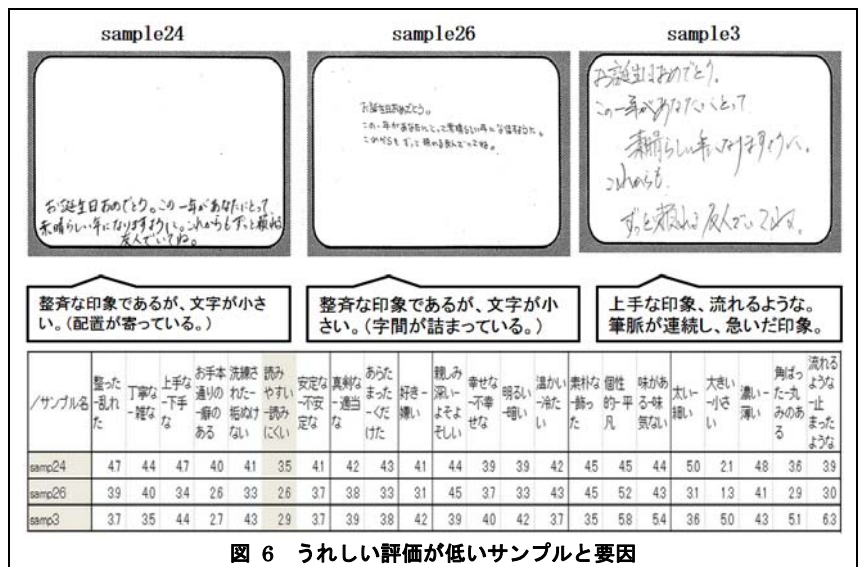 sample24
お誕生日おめでとう。この一年があなたにとって
素晴らしい年になりますように。これからもずっと頼れる
友人でいてね。
sample26
お誕生日おめでとう。
この一年があなたにとって素晴らしい年になりますように。
これからもずっと頼れる友人でいてね。
sample3
お誕生日おめでとう。
この一年があなたにとって
素晴らしい年になりますように。
これからも
ずっと頼れる友人でいてね。
整斉な印象であるが、文字が小さ
い。(配置が寄っている。)
整斉な印象であるが、文字が小
さい。(字間が詰まっている。)
上手な印象、流れるような。
筆脈が連続し、急いだ印象。
/サンプル名 整った-乱れた 丁寧な-雑な 上手な-下手な お手本通りの-癖のある 洗練された-垢ぬけない 読みやすい-読みにくい 安定な-不安定な 真剣な-適当な あらたまった-くだけた 好き-嫌い 親しみ深い-よそよそしい 幸せな-不幸せな 明るい-暗い 温かい-冷たい 素朴な-飾った 個性的-平凡 味がある-味気ない 太い-細い 大きい-小さい 濃い-薄い 角ばった-丸みのある 流れるような-止まったような
samp24 4.7 4.4 4.7 4.0 4.1 3.5 4.1 4.2 4.3 4.1 4.4 3.9 3.9 4.2 4.5 4.5 4.4 5.0 2.1 4.8 3.6 3.9
samp26 3.9 4.0 3.4 2.6 3.3 2.6 3.7 3.8 3.3 3.1 4.5 3.7 3.3 4.3 4.5 5.2 4.3 3.1 1.3 4.1 2.9 3.0
samp3 3.7 3.5 4.4 2.7 4.3 2.9 3.7 3.9 3.8 4.2 3.9 4.0 4.2 3.7 3.5 5.8 5.4 3.6 5.0 4.3 5.1 6.3
図 6 うれしい評価が低いサンプルと要因